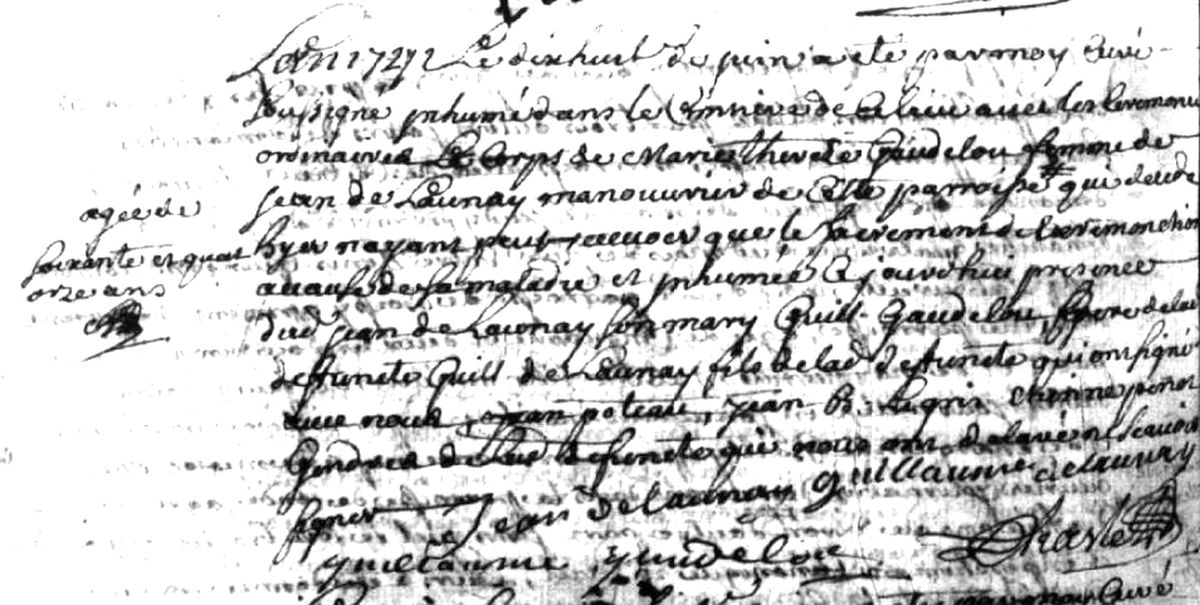 L'an 1727 Le dixhuit de juin a ete par moy Curé
soussigné inhumé dans le Cimtiere de Ce lieu avec les Ceremonies
ordinaires Le Corps de Marie therese Gaudelou femme de
jean de Launay manouvrier de Cette parroisse qui deceda
hyer nayant peut recevoir que le sacrement de Lextremonction
agée de
soixante et quat
orze ans
a cause de sa maladie et inhumée Cejourd'huy presence
dud jean de Launay son mary Guill. Gaudelou frere de lad
deffuncte Guill de Launay fils de lad deffuncte qui ont signé
avec nous, jean poteau, jean B.
Gendres de lad deffuncte qui nous ont declaré ne scavoir
signer
jean delaunay guillaume delaunay
guillaume gaudelou
par moy Curé